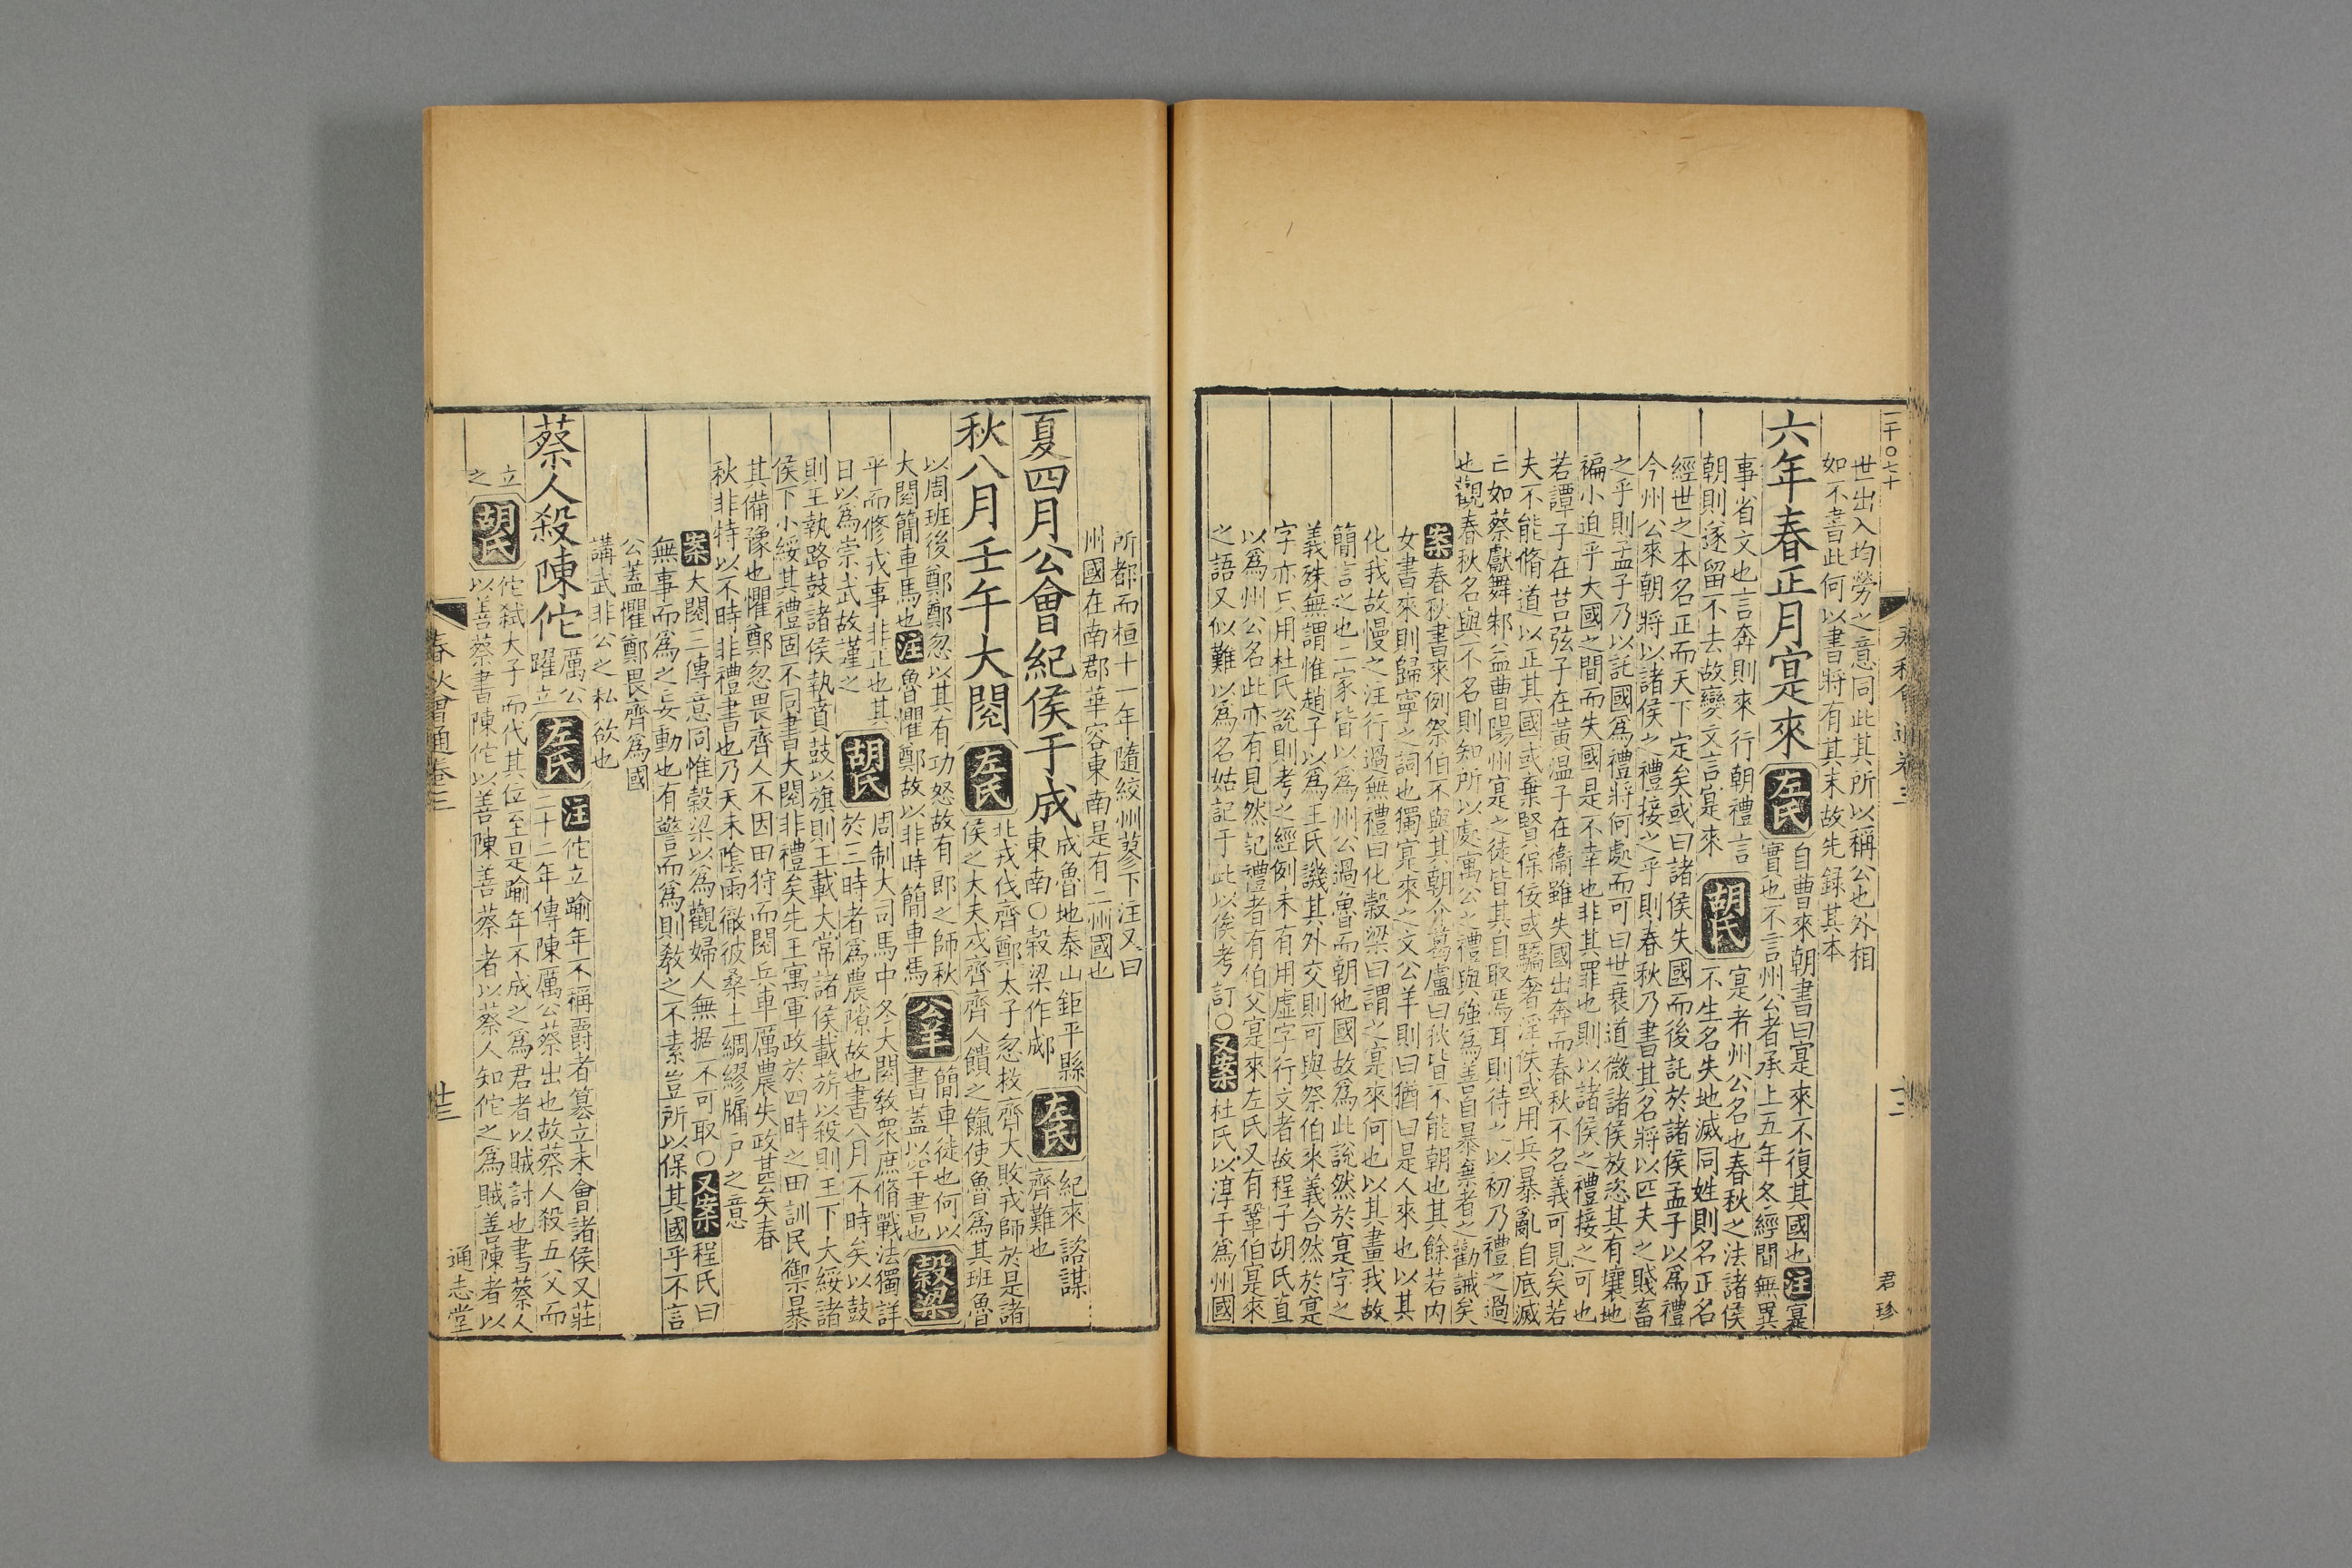 二千〇七十
世出入均勞之意同此其所以稱公也外相
如不書此何以書將有其末故先録其本
六年春正月寔來
左氏
自曹來朝書曰寔來不復其國也
注
寔
實也不言州公者承上五年冬經間無異
事省文也言奔則來行朝禮言
朝則遂留不去故變文言寔來
胡氏
寔者州公名也春秋之法諸侯
不生名失地滅同姓則名正名
經世之本名正而天下定矣或曰諸侯失國而後託於諸侯孟子以爲禮
今州公來朝將以諸侯之禮接之乎則春秋乃書其名將以匹夫之賤畜
之乎則孟子乃以託國爲禮將何處而可曰世衰道微諸侯放恣其有壤地
褊小迫乎大國之間而失國是不幸也非其罪也則以諸侯之禮接之可也
若譚子在莒弦子在黄温子在衞雖失國出奔而春秋不名義可見矣若
夫不能脩道以正其國或棄賢保佞或驕奢淫佚或用兵暴亂自底滅
亡如蔡獻舞邾益曹陽州寔之徒皆其自取焉耳則待之以初乃禮之過
也觀春秋名與不名則知所以處寓公之禮與強爲善自暴棄者之勸誡矣
案
春秋書來例祭伯不與其朝介葛盧曰狄皆不能朝也其餘若内
女書來則歸寧之詞也獨寔來之文公羊則曰猶曰是人來也以其
化我故慢之注行過無禮曰化穀梁曰謂之寔來何也以其畫我故
簡言之也二家皆以爲州公過魯而朝他國故爲此説然於寔字之
義殊無謂惟趙子以爲王氏譏其外交則可與祭伯來義合然於寔
字亦只用杜氏説則考之經例未有用虚字行文者故程子胡氏直
以爲州公名此亦有見然記禮者有伯父寔來左氏又有鞏伯寔來
之語又似難以爲名姑記于此以俟考訂〇
又案
杜氏以淳于爲州國
春秋會通卷三
十二
君珍
所都而桓十一年隨絞州蓼下注又曰
州國在南郡華容東南是有二州國也
夏四月公會紀侯于成
成魯地泰山鉅平縣
東南〇穀梁作郕
左氏
紀來諮謀
齊難也
秋八月壬午大閱
左氏
北戎伐齊鄭太子忽救齊大敗戎師於是諸
侯之大夫戍齊齊人饋之餼使魯爲其班魯
以周班後鄭鄭忽以其有功怒故有郎之師秋
大閱簡車馬也
注
魯懼鄭故以非時簡車馬
公羊
簡車徒也何以
書蓋以罕書也
穀梁
平而修戎事非正也其
日以爲崇武故謹之
胡氏
周制大司馬中冬大閱教衆庶脩戰法獨詳
於三時者爲農隙故也書八月不時矣以鼓
則王執路鼓諸侯執賁鼓以旗則王載大常諸侯載旂以殺則王下大綏諸
侯下小綏其禮固不同書大閱非禮矣先王寓軍政於四時之田訓民禦暴
其備豫也懼鄭忽畏齊人不因田狩而閱兵車厲農失政甚矣春
秋非特以不時非禮書也乃天未陰雨徹彼桑土綢繆牖户之意
案
大閱三傳意同惟穀梁以爲觀婦人無据不可取〇
又案
程氏曰
無事而爲之妄動也有警而爲則教之不素豈所以保其國乎不言
公蓋懼鄭畏齊爲國
講武非公之私欲也
蔡人殺陳佗
厲公
躍立
左氏
注
佗立踰年不稱爵者篡立未會諸侯又莊
二十二年傳陳厲公蔡出也故蔡人殺五父而
立
之
胡氏
佗弑大子而代其位至是踰年不成之爲君者以賊討也書蔡人
以善蔡書陳佗以善陳善蔡者以蔡人知佗之爲賊善陳者以
春秋會通卷三
十三
通志堂